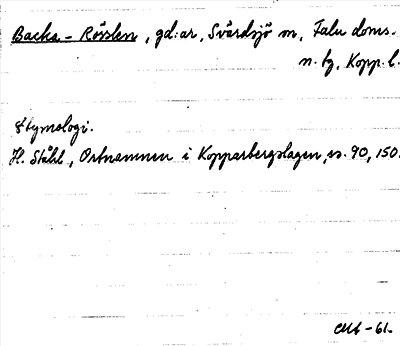 Backa - Rösslen, gd:ar, Svärdsjö sn, Falu doms.
n. tg, Kopp. l.
Etymologi.
H. Ståhl, Ortnamnen i Kopparbergslagen, s. 90, 150.
-61.